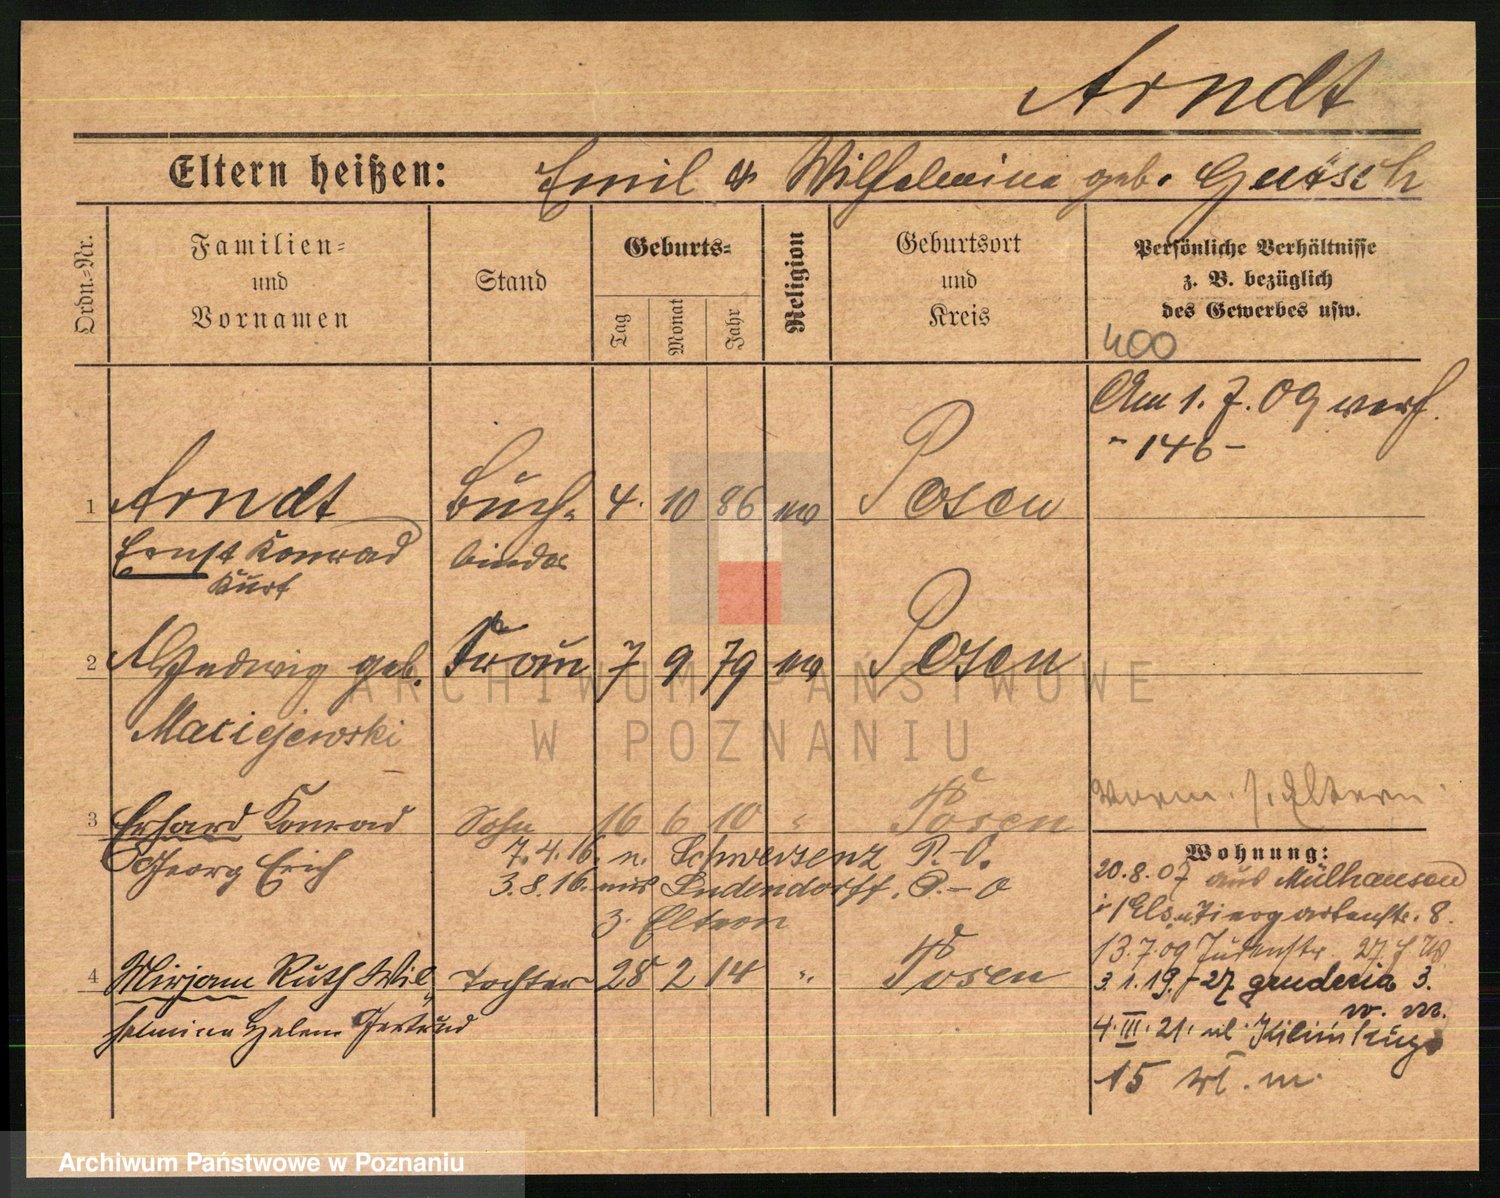 Arndt
Eltern heißen: Emil & Wilhelmina geb.
Ordn.=Nr.
Familien=
und
Vornamen
Stand
Geburts=
Tag
Monat
Jahr
Religion
Geburtsort
und
Kreis
Persönliche Verhältnisse
z. B. bezüglich
des Gewerbes usw.
400
Am 1. 7. 09 verh.
- 146 -
1 Arndt Buch= 4. 10 86 Posen
Ernst Konrad binder
Kurt
2 Hedwig geb. Frau 7 9 79 Posen
Maciejewski
3 Erhard Konrad Sohn 16 6 10 " Posen
Georg Erich
7. 4. 16. n. Schwersenz P.-O.
3. 8. 16. aus Ludendorff. P.-O
z. Eltern
4 Mirjam Ruth Wil= Tochter 28 2 14 " Posen
helmina Helene Gertrud
vorm. s. Eltern
Wohnung:
20.8.07 aus Mülhausen
i/Els. Tiergartenstr. 8.
13.7.09 Judenstr. 27.
3. 1. 19. 27 3.
w. m.
4. III. 21. ul.
15 m.
ARCHIWUM PAŃSTWOWE
W POZNANIU
Archiwum Państwowe w Poznaniu